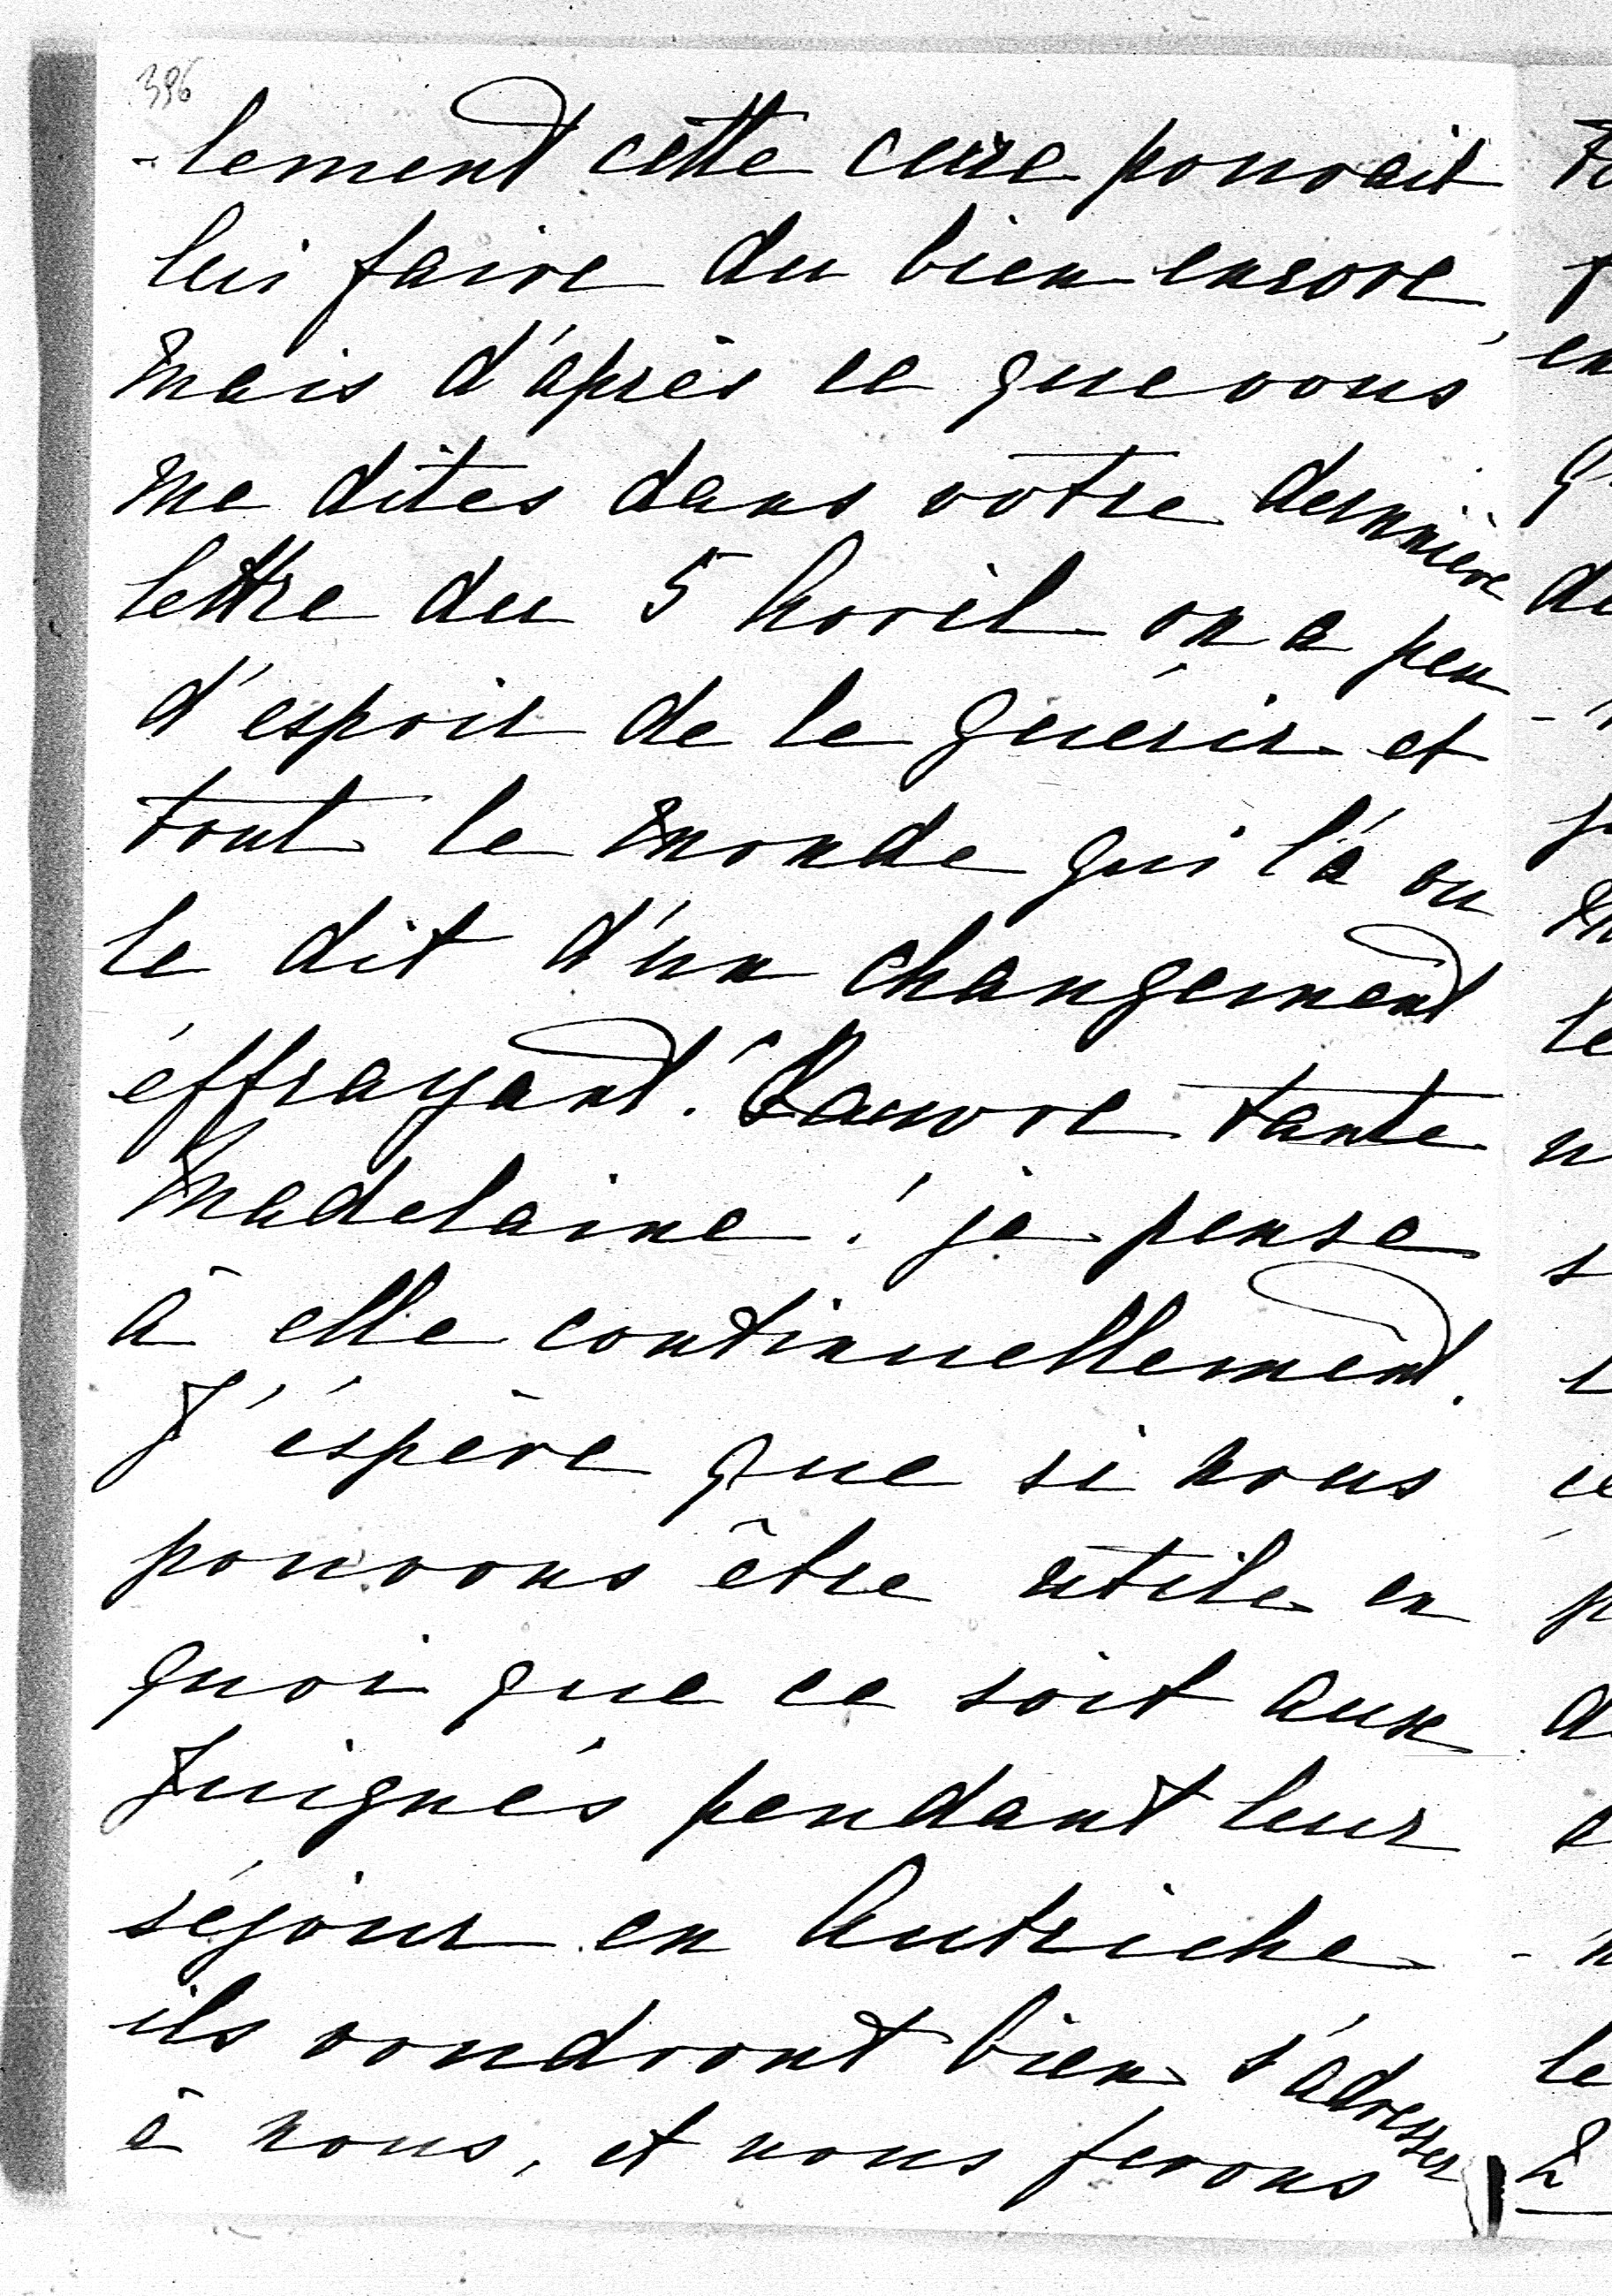 396
-lement cette cure pouvait
lui faire du bien encore,
mais d'après ce que vous
me dites dans votre dernnière
lettre du 5 Avril on a peu
d'espoir de le guérir et
tout le monde qui l'a vu
le dit d'un changement
éffrayant. Pauvre tante
Madelaine! je pense
à elle continuellement.
J'éspère que si nous
pouvons être utile en
quoi que ce soit aux
Juignés pendant leur
séjour en Autriche
ils voudront bien s'adresser
à nous, et nous ferons